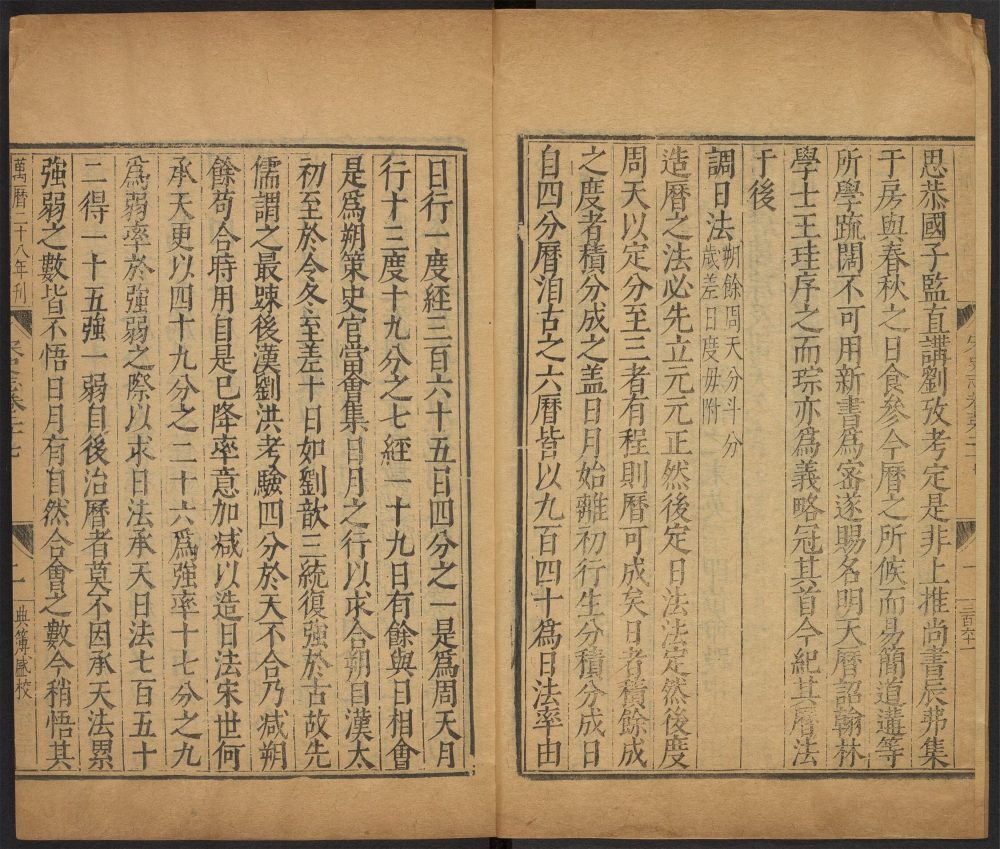 思恭國子監直講劉攽考定是非上推尚書辰弗集
于房與春秋之日食參今曆之所候而易簡道遘等
所學疏闊不可用新書爲密遂賜名明天曆詔翰林
學士王珪序之而琮亦爲義略冠其首今紀其曆法
于後
調日法
朔餘周天分斗分
歲差日度毋附
造曆之法必先立元元正然後定日法法定然後度
周天以定分至三者有程則曆可成矣日者積餘成
之度者積分成之盖日月始離初行生分積分成日
自四分曆洎古之六曆皆以九百四十爲日法率由
日行一度經三百六十五日四分之一是爲周天月
行十三度十九分之七經二十九日有餘與日相會
是爲朔策史官當會集日月之行以求合朔自漢太
初至於今冬至差十日如劉歆三統復強於古故先
儒謂之最踈後漢劉洪考驗四分於天不合乃减朔
餘苟合時用自是已降率意加减以造日法宋世何
承天更以四十九分之二十六爲強率十七分之九
爲弱率於強弱之際以求日法承天日法七百五十
二得一十五強一弱自後治曆者莫不因承天法累
強弱之數皆不悟日月有自然合會之數今稍悟其
萬曆二十八年刊
二
典簿盛校